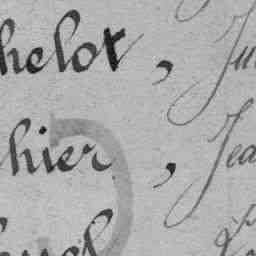 helot, Ju
hier, Jea